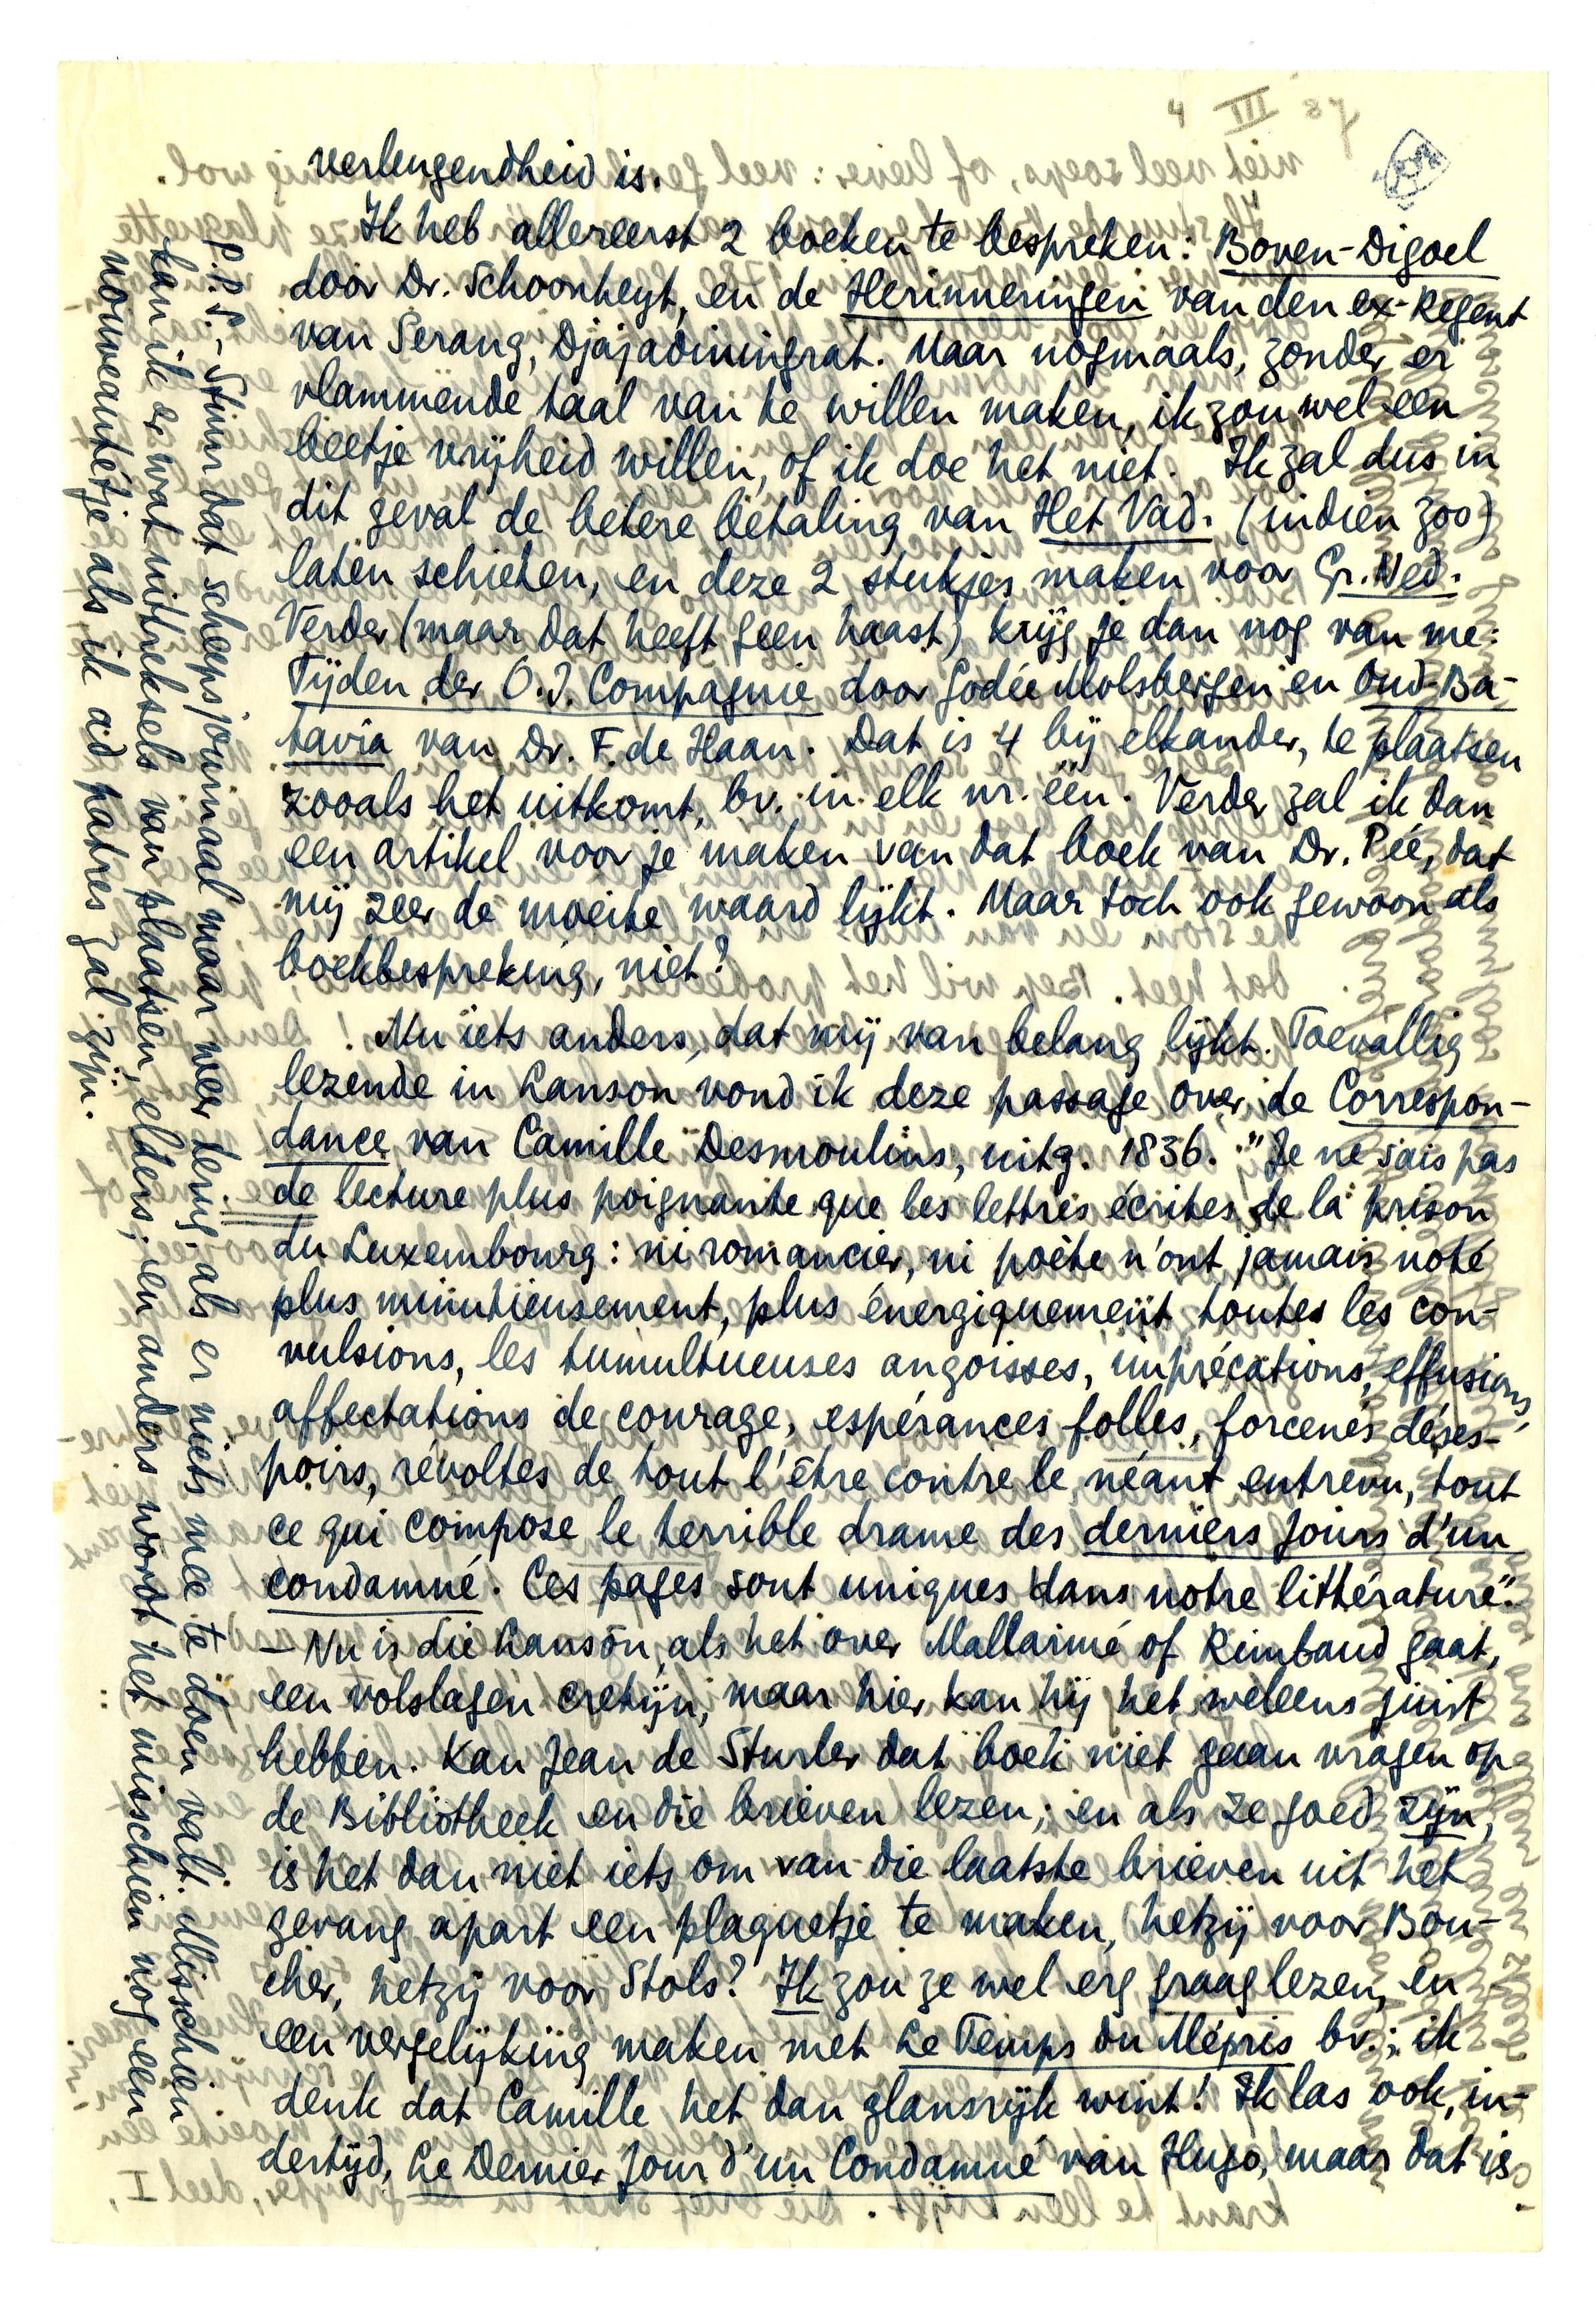 verleugendheid is.
Ik heb allereerst 2 boeken te bespreken: Boven-Digoel
door Dr. Schoonheyt, en de Herinneringen van den ex-Regent
van Serang, Djajadiningrat. Maar nogmaals, zonder er
vlammende taal van te willen maken, ik zou wel een
beetje vrijheid willen, of ik doe het niet. Ik zal dus in
dit geval de betere betaling van Het Vad. (indien zoo)
laten schieten, en deze 2 stukjes maken voor Gr. Ned.
Verder (maar dat heeft geen haast) krijg je dan nog van me:
Tijden der O.I. Compagnie door Godée Molsbergen en Oud-Ba-
tavia van Dr. F. de Haan. Dat is 4 bij elkander, te plaatsen
zooals het uitkomt, bv. in elk nr. één. Verder zal ik dan
een artikel voor je maken van dat boek van Dr. Pée, dat
mij zeer de moeite waard lijkt. Maar toch ook gewoon als
boekbespreking, niet?
Nu iets anders, dat mij van belang lijkt. Toevallig
lezende in Lanson vond ik deze passage over de Correspon-
dance van Camille Desmoulins, uitg. 1836. "Je ne sais pas
de lecture plus poignante que les lettres écrites de la prison
du Luxembourg: ni romancier, ni poète n'ont jamais noté
plus minutieusement, plus énergiquement toutes les con-
vulsions, les tumultueuses angoisses, imprécations, effusions,
affectations de courage, espérances folles, forcenés déses-
poirs, révoltes de tout l'être contre le néant entrevu, tout
ce qui compose le terrible drame des derniers jours d'un
condamné. Ces pages sont uniques dans notre littérature".
— Nu is die Lanson, als het over Mallarmé of Rimbaud gaat,
een volslagen cretijn, maar hier kan hij het weleens juist
hebben. Kan Jean de Sturler dat boek niet gaan vragen op
de Bibliotheek en die brieven lezen; en als ze goed zijn,
is het dan niet iets om van die laatste brieven uit het
gevang apart een plaquetje te maken, hetzij voor Bou-
cher, hetzij voor Stols? Ik zou ze wel erg graag lezen, en
een vergelijking maken met Le Temps du Mépris bv.; ik
denk dat Camille het dan glansrijk wint! Ik las ook, in-
dertijd, Le Dernier Jour d'un Condamné van Hugo, maar dat is
P.P.S. - Stuur dat scheepsjournaal maar weer terug als er niets mee te doen valt. Misschien
kan ik er wat uittreksels van plaatsen, elders; en anders wordt het misschien nog een
nouveautétje als ik ad patres zal zijn.
4 III 37